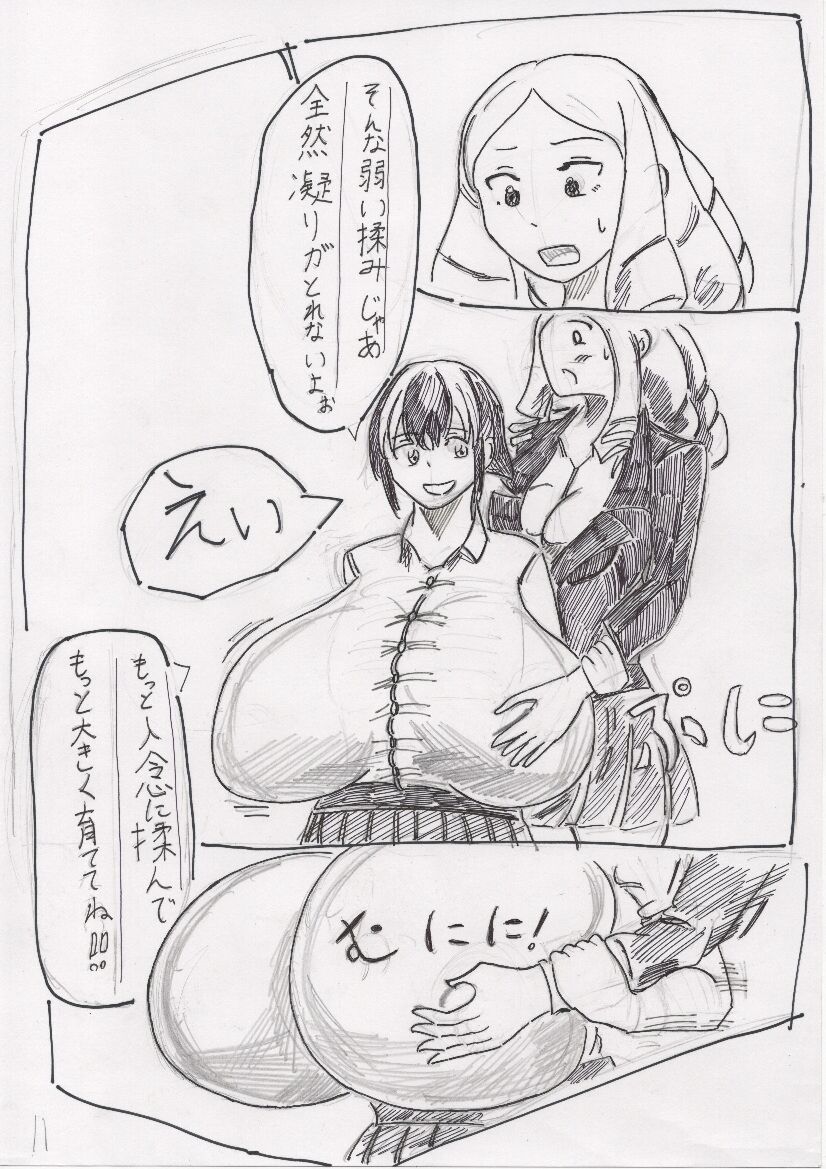 そんな弱い揉みじゃあ
全然凝りがとれないよぉ
えい
ぷに
もっと入念に揉んで
もっと大きく育ててね!!!
むにに!
11